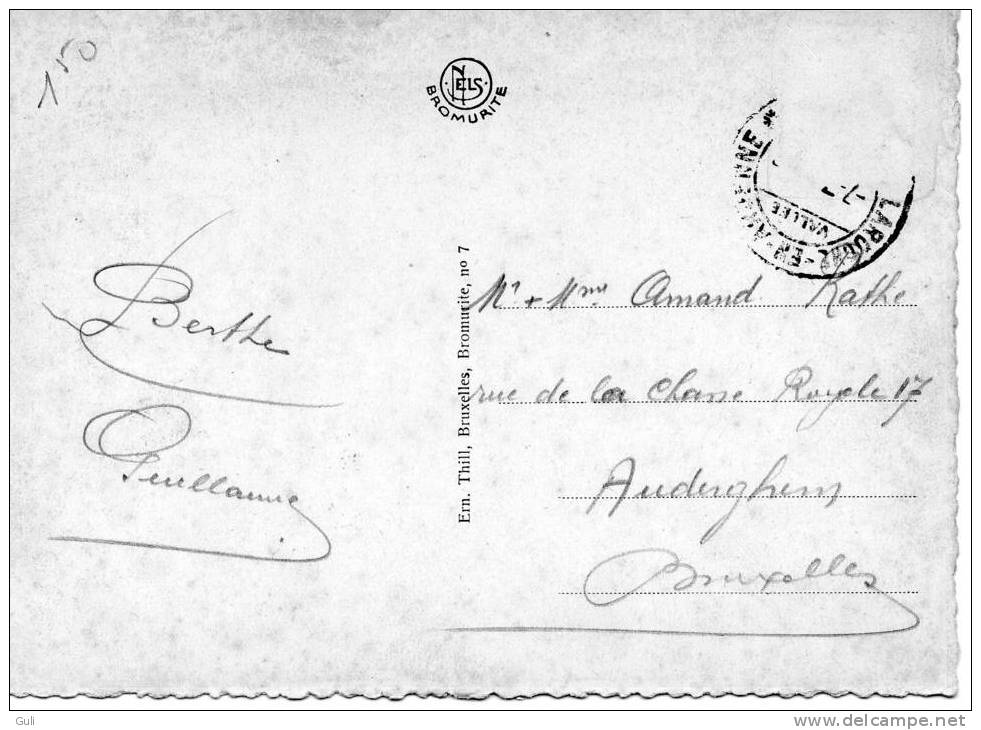 150
NELS
BROMURITE
LAROCHE-EN-ARDENNE *
VALLEE
-7-
Berthe
Guillaume
Ern. Thill, Bruxelles, Bromurite, no 7
Mr + Mme Amand Kathe
rue de la Chasse Royale 17
Auderghem
Bruxelles
Guli
www.delcampe.net